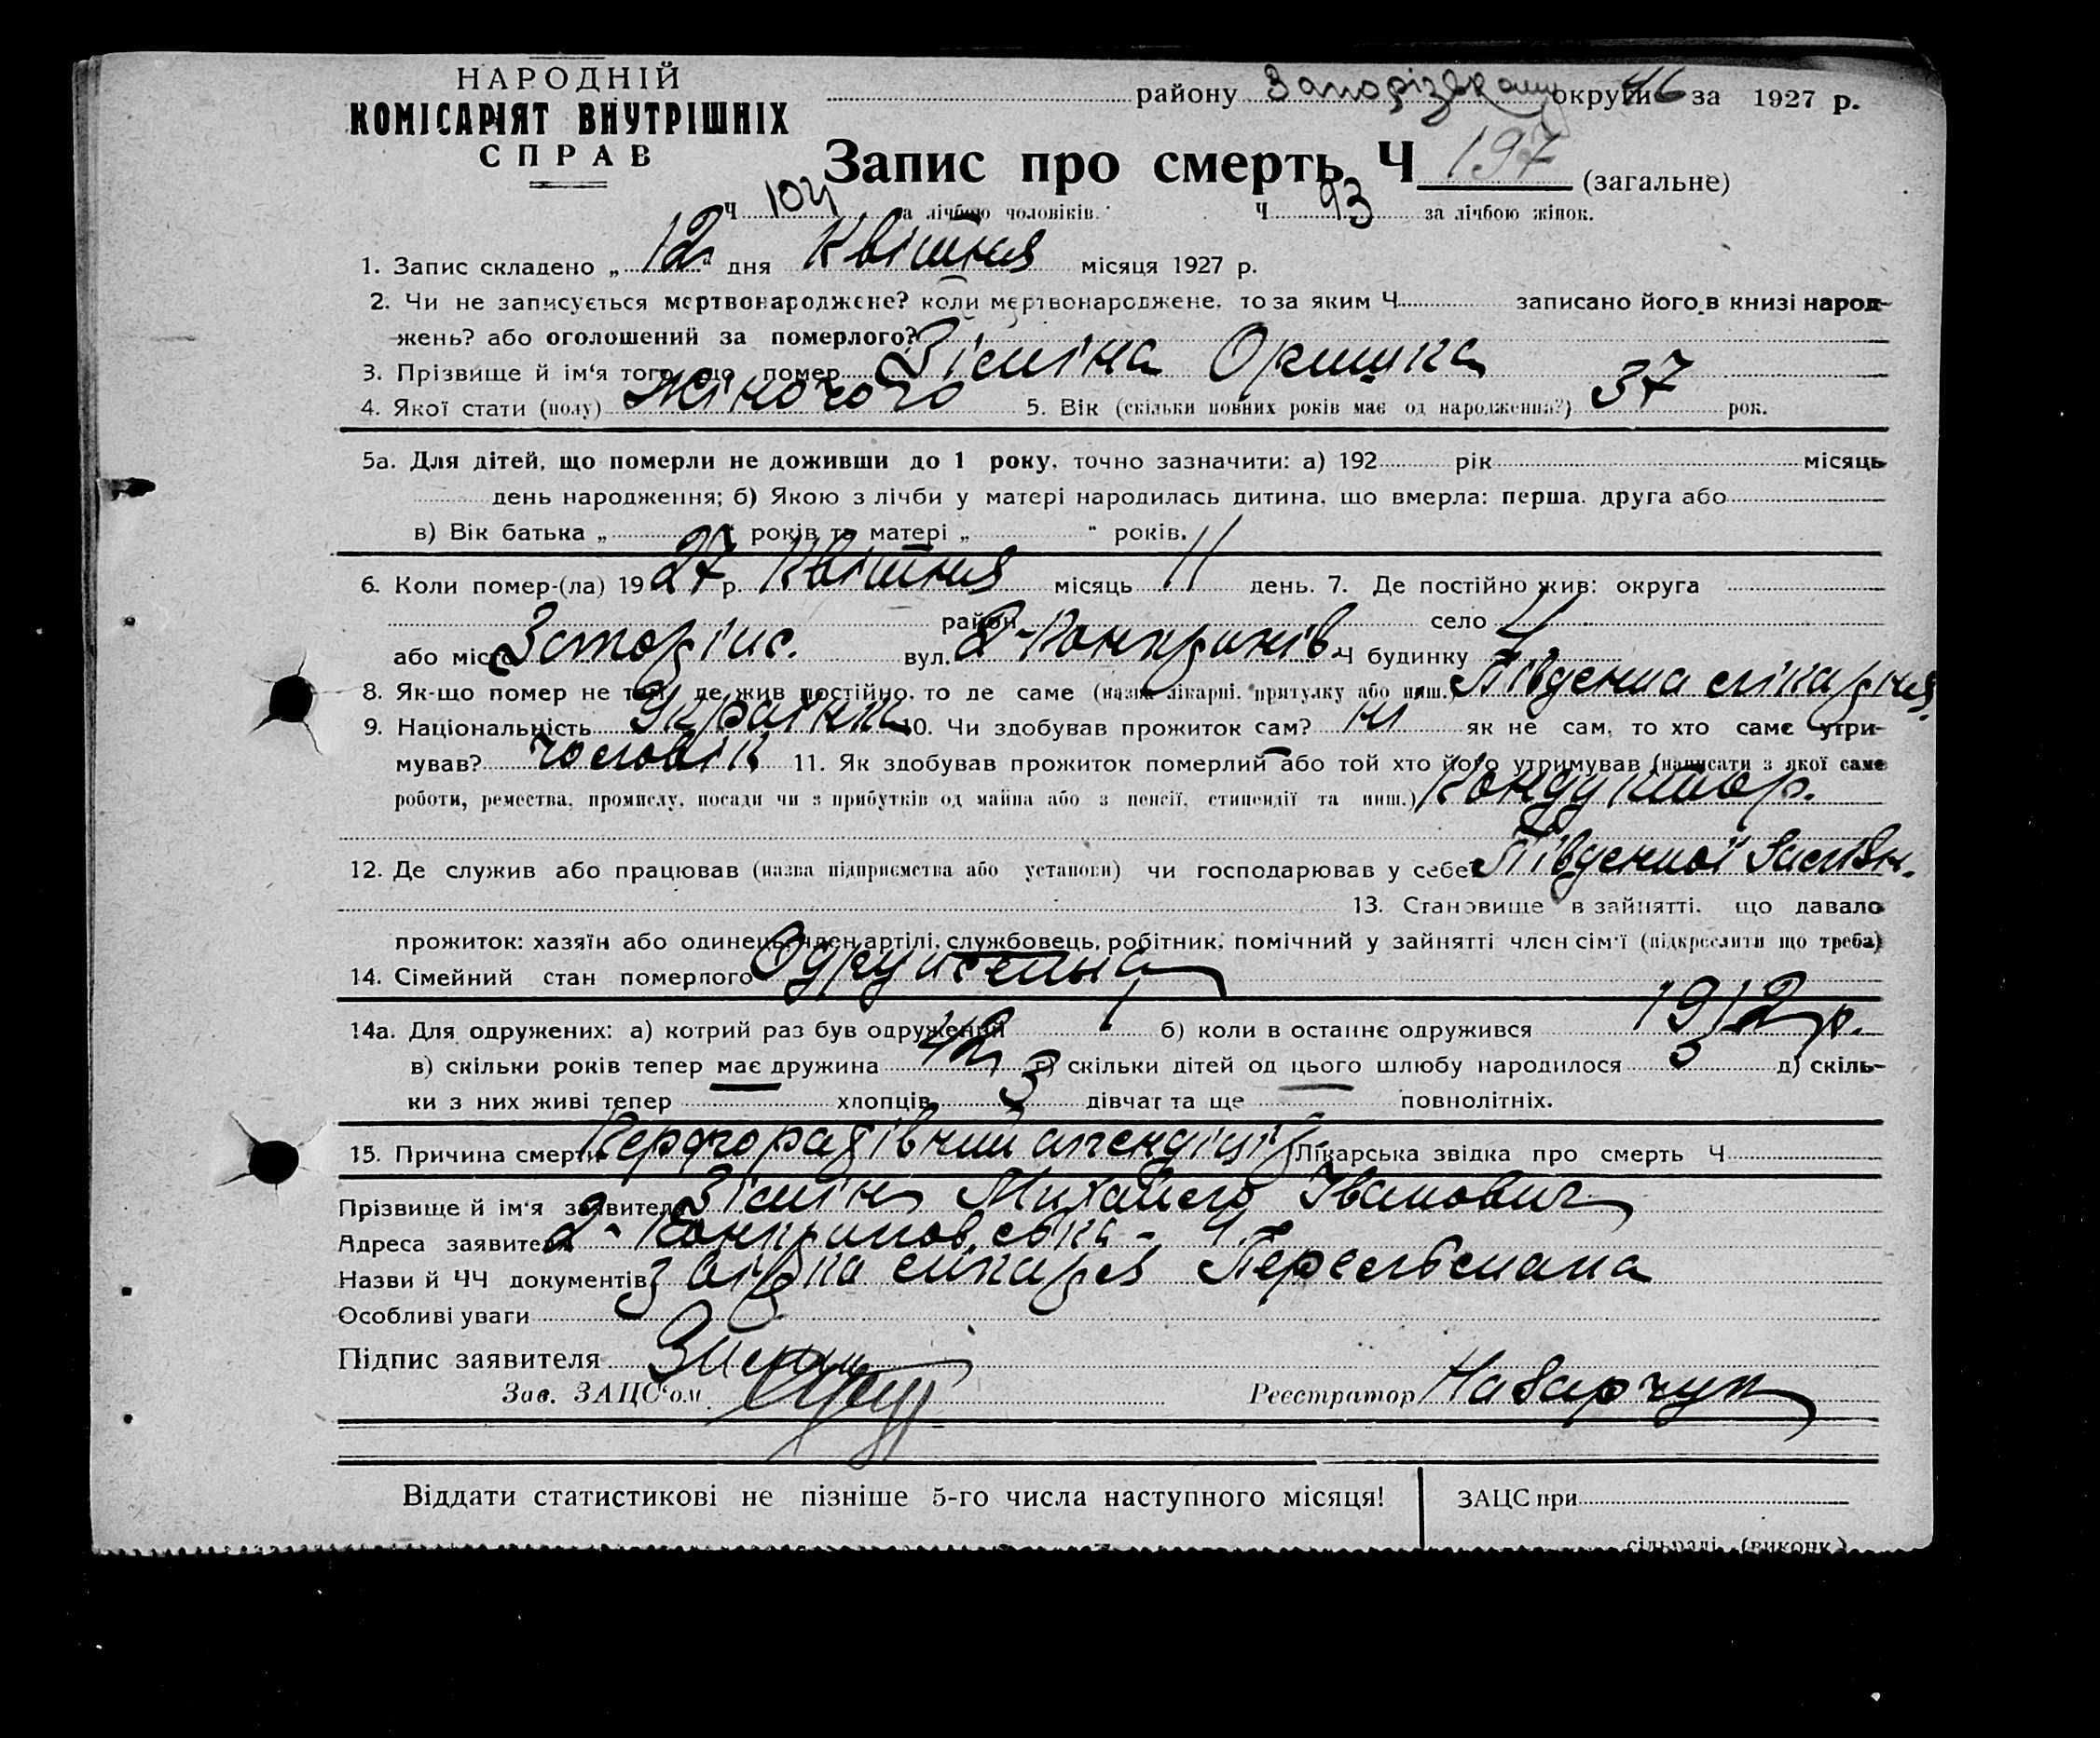 НАРОДНІЙ
КОМІСАРІЯТ ВНУТРІШНІХ
СПРАВ
району Запорізької округи 46 за 1927 р.
Запис про смерть Ч 197 (загальне)
Ч 104 за лічбою чоловіків. Ч 93 за лічбою жінок.
1. Запис складено „12“ дня Квітня місяця 1927 р.
2. Чи не записується мертвонароджене? коли мертвонароджене, то за яким Ч записано його в книзі народ-
жень? або оголошений за померлого?
3. Прізвище й ім'я того, що помер Зіміна Оришка
4. Якої стати (полу) Жіночого 5. Вік (скільки повних років має од народження?) 37 рок.
5а. Для дітей, що померли не доживши до 1 року, точно зазначити: а) 192 рік місяць
день народження; б) Якою з лічби у матері народилась дитина, що вмерла: перша, друга або
в) Вік батька „ “ років та матері „ “ років.
6. Коли помер-(ла) 1927 р. Квітня місяць 11 день. 7. Де постійно жив: округа
район село
або місто Запоріж. вул. 2-Конкринів Ч будинку 4
8. Як-що помер не там, де жив постійно, то де саме (назва лікарні, притулку або инш.) Південна лікарня.
9. Національність Українка 10. Чи здобував прожиток сам? ні як не сам, то хто саме утри-
мував? чоловік 11. Як здобував прожиток померлий або той хто його утримував (написати з якої саме
роботи, ремества, промислу, посади чи з прибутків од майна або з пенсії, стипендії та инш.) Кондуктор.
12. Де служив або працював (назва підприємства або установи) чи господарював у себе? Південної
13. Становище в зайнятті, що давало
прожиток: хазяїн або одинець, член артілі, службовець, робітник, помічний у зайнятті член сім'ї (підкреслити що треба)
14. Сімейний стан померлого Одружена
14а. Для одружених: а) котрий раз був одружений 1 б) коли в останнє одружився 1912 р.
в) скільки років тепер має дружина 42 г) скільки дітей од цього шлюбу народилося 3 д) скіль-
ки з них живі тепер хлопців 3 дівчат та ще повнолітніх.
15. Причина смерти Перфоратівний апендіціт Лікарська звідка про смерть Ч
Прізвище й ім'я заявителя Зімін Михайло Іванович
Адреса заявителя 2-Конкриновська - 4.
Назви й ЧЧ документів лікаря Персельмана
Особливі уваги
Підпис заявителя Зимин
Зав. ЗАЦС'ом Реєстратор Назарчук
Віддати статистикові не пізніше 5-го числа наступного місяця!
ЗАЦС при
сільраді (виконк.)